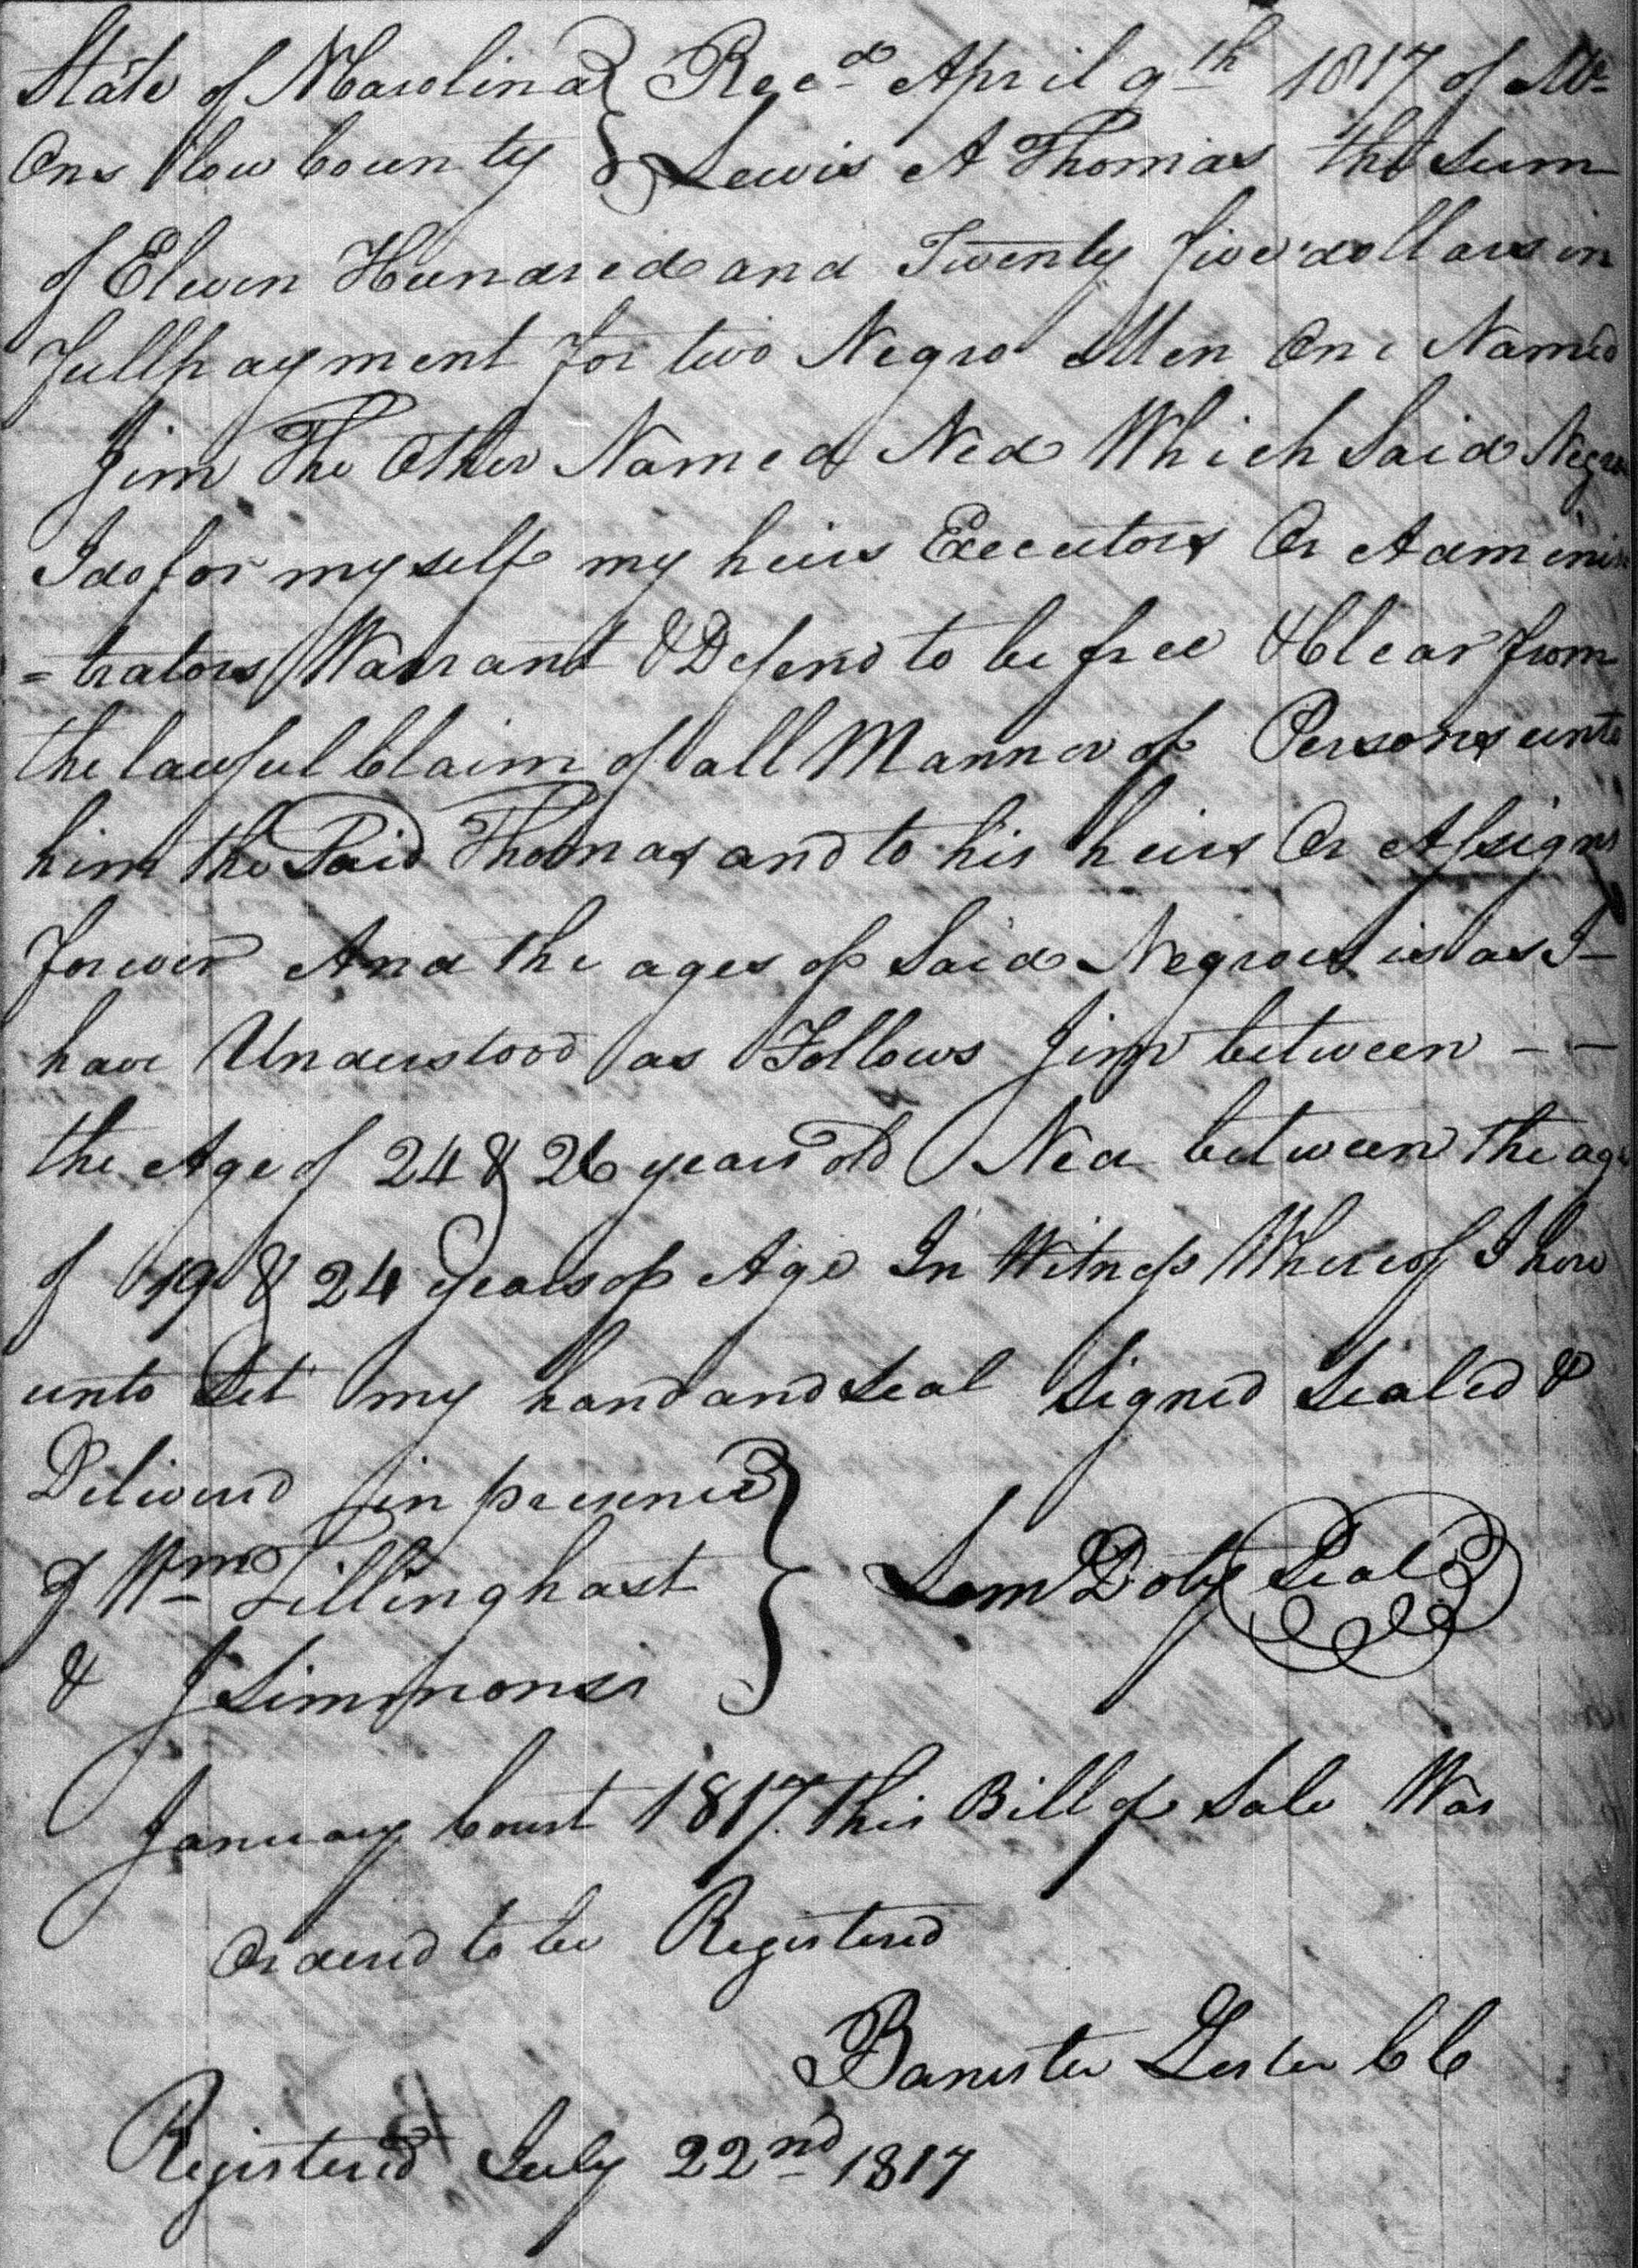 State of NCarolina } Recd April 9th 1817 of Mr
Onslow County } Lewis A Thomas the Sum
of Eleven Hundred and Twenty five dollars in
full payment for two Negro Men One Named
Jim The Other Named Ned Which Said Negros
I do for myself my heirs Executors Or Adminis
=trators Warrant & Defend to be free & Clear from
the lawful Claim of all Manner of Persons unto
him the Said Thomas and to his heirs Or Assigns
forever And the ages of Said Negroes is as I
have Understood as Follows Jim between - -
the Age of 24 & 26 years old Ned between the age
of 19 & 24 years of Age In Witness Whereof I here
unto Set my hand and Seal Signed Sealed &
Delivered in presence
of Wm Tillinghast } Lem Doty Seal
& J Simmons
January Court 1817. This Bill of Sale Was
Ordered to be Registered
Banister Lester CC
Registered July 22nd 1817